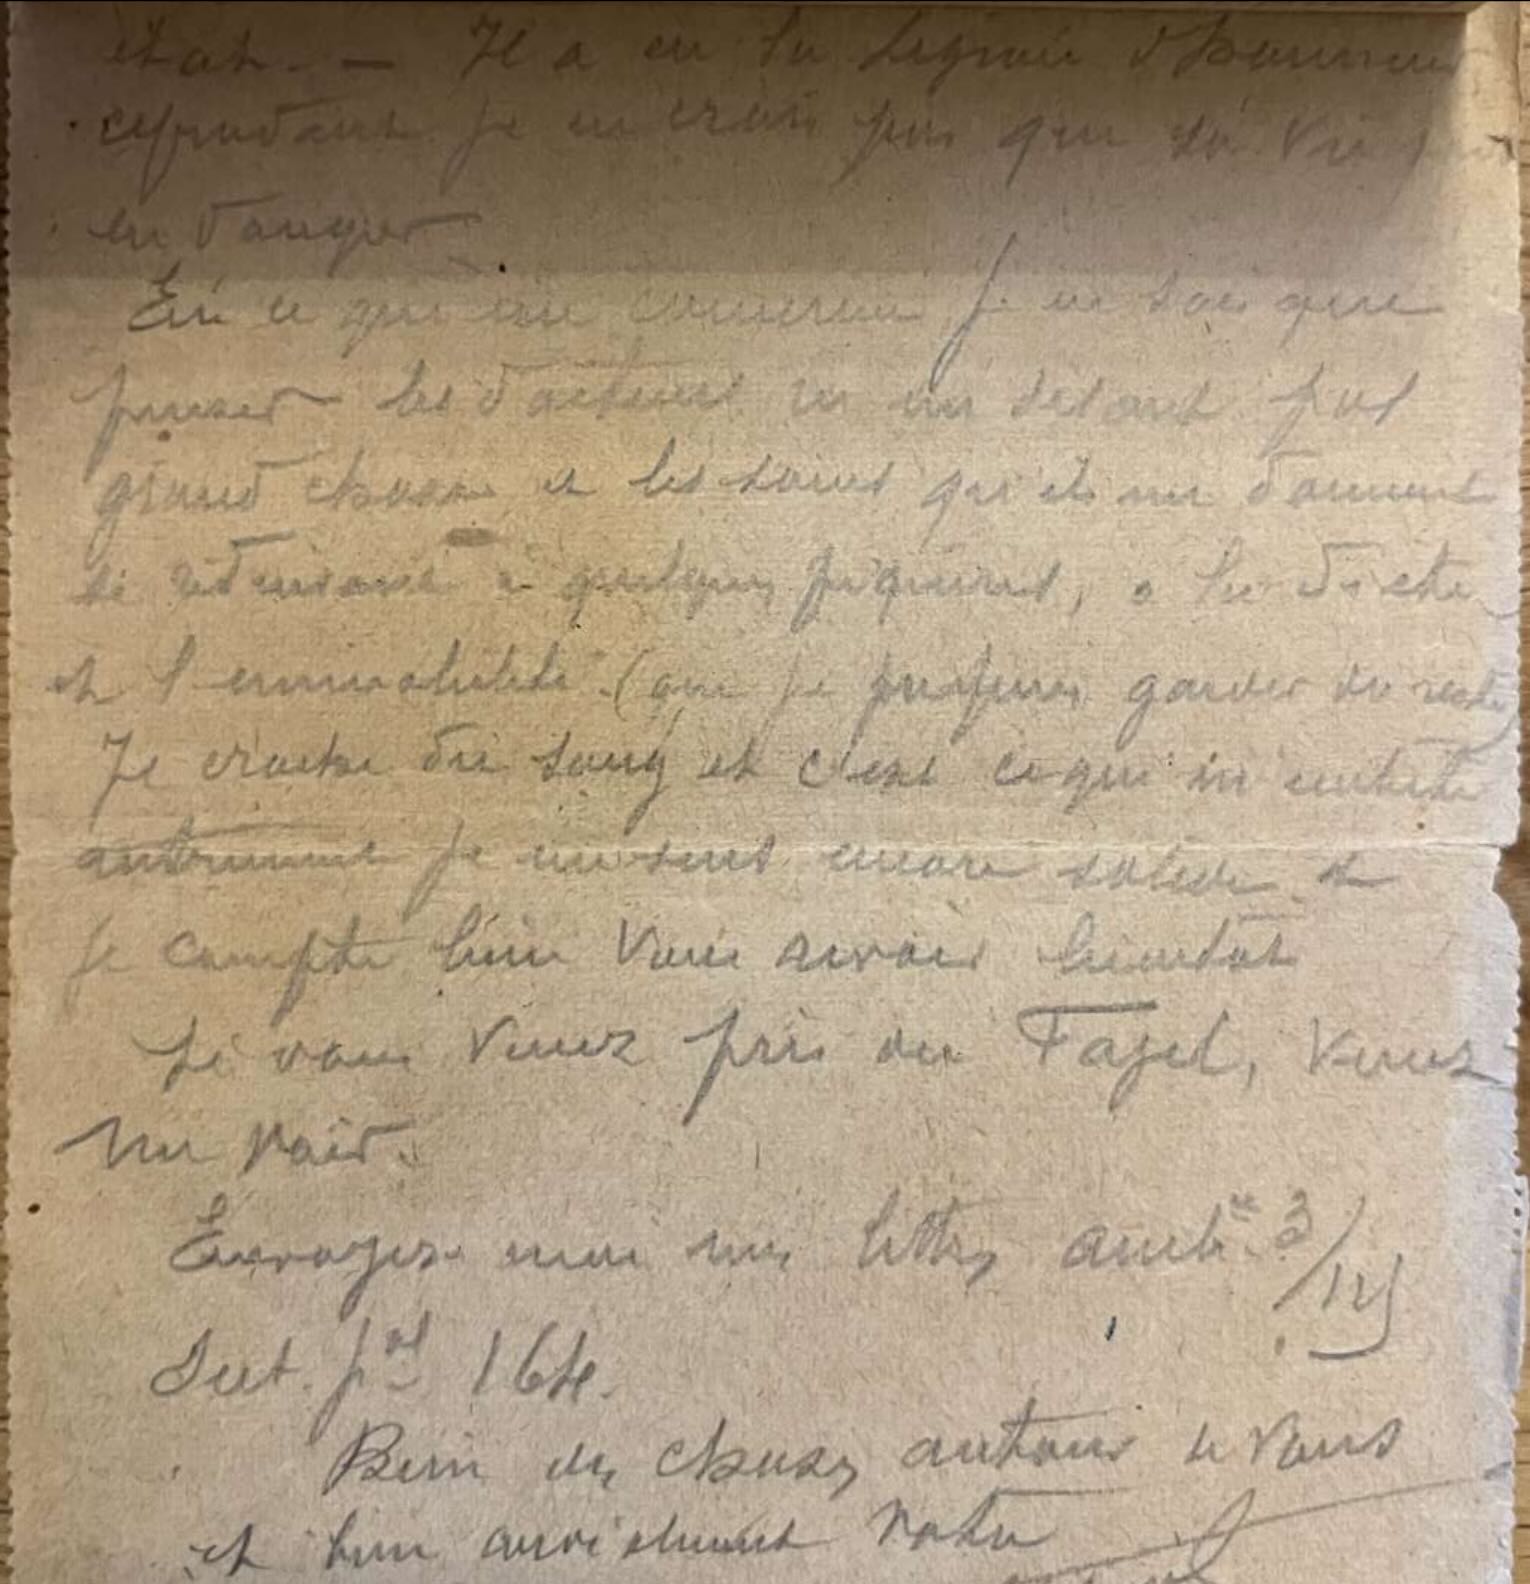 état. — Il a eu la Légion d'honneur
cependant je ne crois pas que sa vie
en danger
En ce qui me concerne je ne sais que
penser les docteurs ne me disent pas
grand chose et les soins qu'ils me donnent
se réduisent à quelques piqûres, à la diète
et l'immobilité (que je préfère garder du reste)
Je crache du sang et c'est ce qui m'embête
autrement je me sens encore solide et
je compte bien vous revoir bientôt
Si vous venez près du Fayel, venez
me voir.
Envoyez moi mes lettres ambce 3/
Sect. pal 164.
Bien des choses autour de vous
et bien amicalement votre